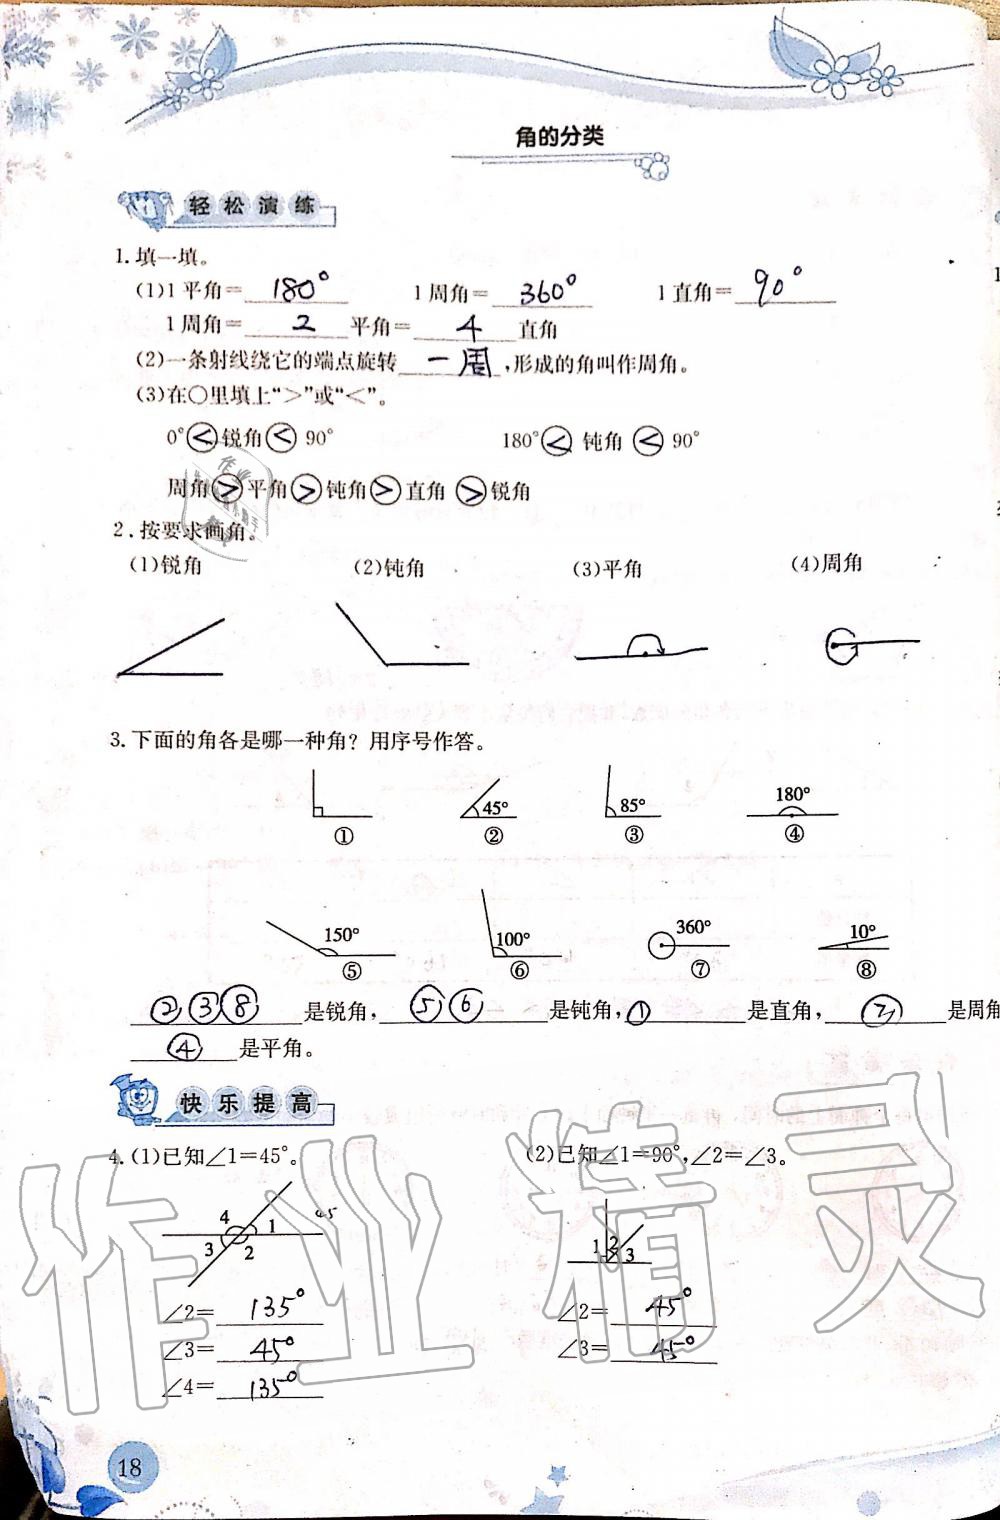 角的分类
轻松演练
1.填一填。
(1)1平角=180° 1周角=360° 1直角=90°
1周角=2平角=4直角
(2)一条射线绕它的端点旋转一周,形成的角叫作周角。
(3)在○里填上“>”或“<”。
0°<锐角<90° 180°<钝角<90°
周角>平角>钝角>直角>锐角
2.按要求画角。
(1)锐角 (2)钝角 (3)平角 (4)周角
3.下面的角各是哪一种角?用序号作答。
45° 85° 180°
① ② ③ ④
150° 100° 360° 10°
⑤ ⑥ ⑦ ⑧
②③⑧是锐角,⑤⑥是钝角,①是直角,⑦是周角
④是平角。
快乐提高
4.(1)已知∠1=45°。 (2)已知∠1=90°,∠2=∠3。
4 1 45 1 2 3
3 2
∠2=135° ∠2=45°
∠3=45° ∠3=45°
∠4=135°
18
作业精灵